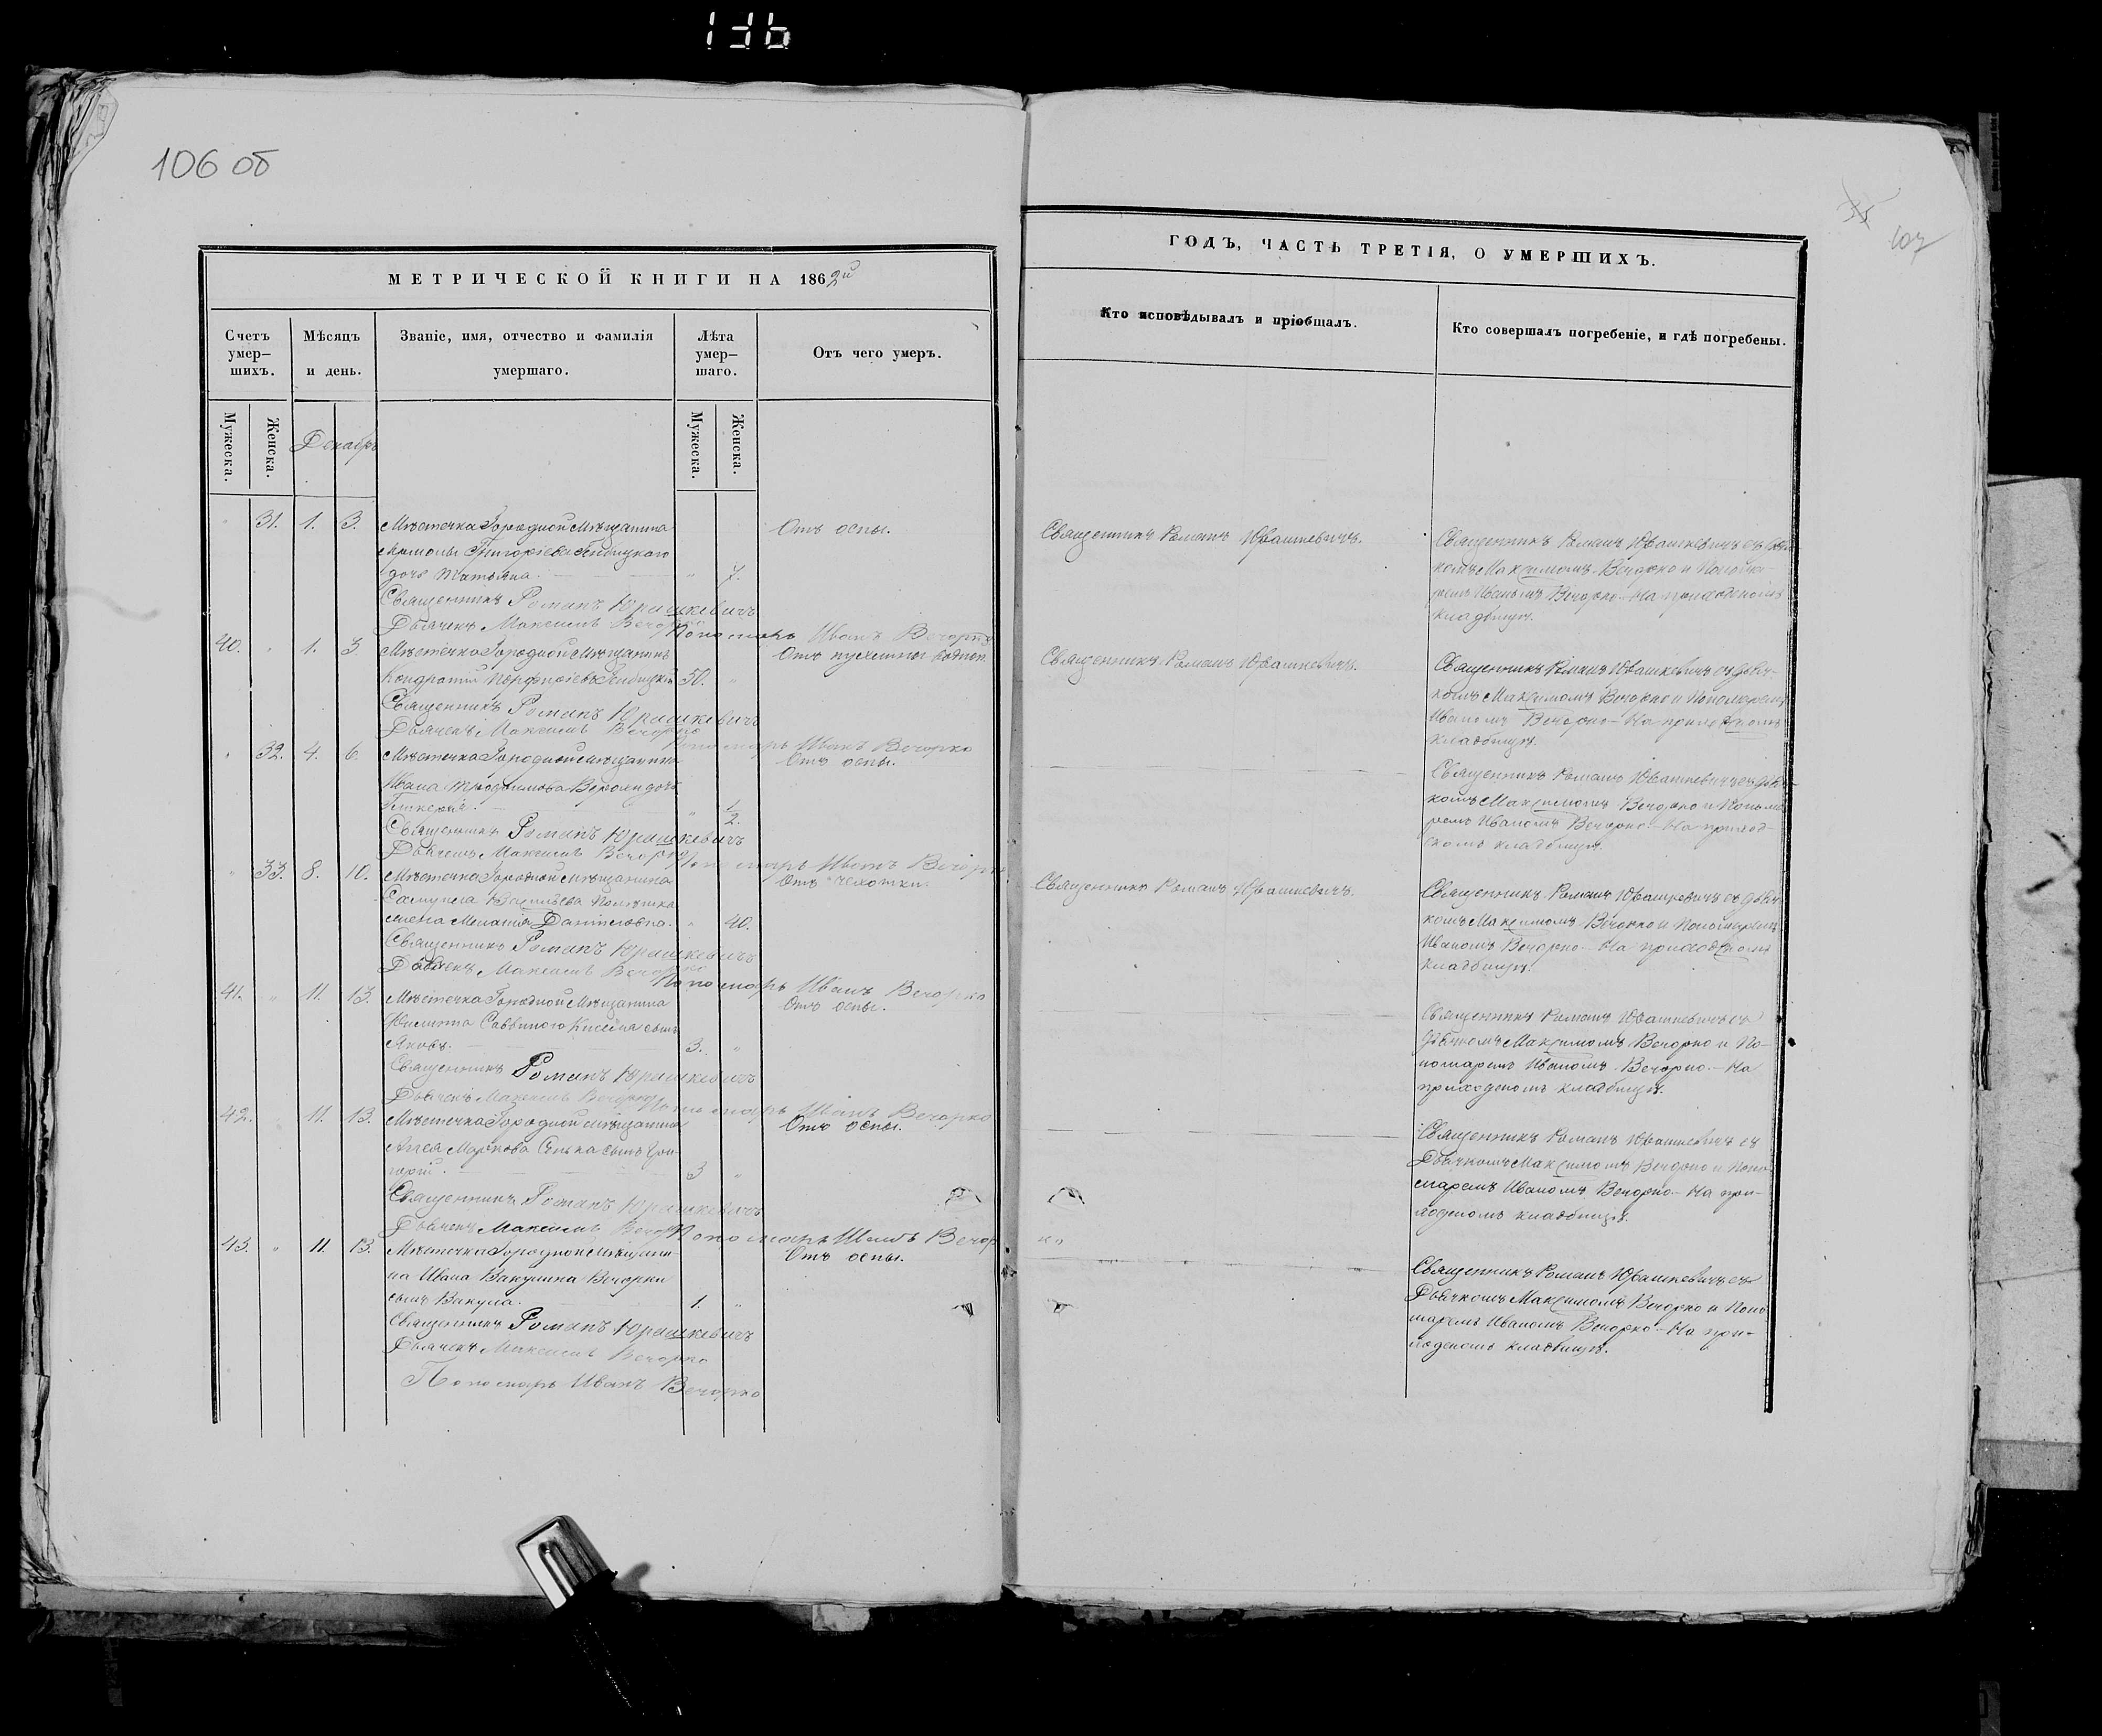 136
106 об
107
МЕТРИЧЕСКОЙ КНИГИ НА 1862й
ГОДЪ, ЧАСТЬ ТРЕТІЯ, О УМЕРШИХЪ.
Счетъ умер- шихъ.
Мѣсяцъ и день.
Званіе, имя, отчество и фамилія умершаго.
Лѣта умер- шаго.
Отъ чего умеръ.
Кто исповѣдывалъ и пріобщалъ.
Кто совершалъ погребеніе, и гдѣ погребены.
Мужеска.
Женска.
Декабрь
Мужеска.
Женска.
31. 1. 3. Мѣстечка Городной Мѣщанина
Григоріева
дочь Татьяна. 7.
Отъ оспы.
Священникъ Романъ Юрашкевичъ.
Священникъ Романъ Юрашкевичъ съ
Максимомъ Вечорко и Понома-
ремъ Иваномъ Вечорко - На приходскомъ
кладбищѣ.
Священникъ Романъ Юрашкевичъ
Дьячекъ Максимъ Вечорко
Пономарь Иванъ Вечорко
40. 1. 3 Мѣстечка Городной Мѣщанинъ
Кондратій 50.
Отъ водян.
Священникъ Романъ Юрашкевичъ.
Священникъ Романъ Юрашкевичъ съ Дьяч-
комъ Максимомъ Вечорко и Пономаремъ
Иваномъ Вечорко - На приходскомъ
кладбищѣ.
Священникъ Романъ Юрашкевичъ
Дьячекъ Максимъ Вечорко
Пономарь Иванъ Вечорко
32. 4. 6. Мѣстечка Городной Мѣщанина
Ивана дочь
Гликерія. 1/2.
Отъ оспы.
Священникъ Романъ Юрашкевичъ съ Дьяч-
комъ Максимомъ Вечорко и Понома-
ремъ Иваномъ Вечорко. - На приход-
скомъ кладбищѣ.
Священникъ Романъ Юрашкевичъ
Дьячекъ Максимъ Вечорко
Пономарь Иванъ Вечорко
33. 8. 10. Мѣстечка Городной Мѣщанина
Самуила Васильева
жена Меланія Даниловна. 40.
Отъ чехотки.
Священникъ Романъ Юрашкевичъ.
Священникъ Романъ Юрашкевичъ съ Дьяч-
комъ Максимомъ Вечорко и Пономаремъ
Иваномъ Вечорко - На приходскомъ
кладбищѣ.
Священникъ Романъ Юрашкевичъ
Дьячекъ Максимъ Вечорко
Пономарь Иванъ Вечорко
41. 11. 13. Мѣстечка Городной Мѣщанина
Саввина сынъ
Яковъ. 3.
Отъ оспы.
Священникъ Романъ Юрашкевичъ съ
Дьячкомъ Максимомъ Вечорко и По-
номаремъ Иваномъ Вечорко. - На
приходскомъ кладбищѣ.
Священникъ Романъ Юрашкевичъ
Дьячекъ Максимъ Вечорко
Пономарь Иванъ Вечорко
42. 11. 13. Мѣстечка Городной Мѣщанина
Маркова сынъ Гри-
горій. 3
Отъ оспы.
Священникъ Романъ Юрашкевичъ съ
Дьячкомъ Максимомъ Вечорко и Поно-
маремъ Иваномъ Вечорко - На при-
ходскомъ кладбищѣ.
Священникъ Романъ Юрашкевичъ
Дьячекъ Максимъ Вечорко
Пономарь Иванъ Вечорко
43. 11. 13. Мѣстечка Городной Мѣщани-
на Ивана Вакулина Вечорки
сынъ Вакула. 1.
Отъ оспы.
Священникъ Романъ Юрашкевичъ съ
Дьячкомъ Максимомъ Вечорко и Поно-
маремъ Иваномъ Вечорко - На при-
ходскомъ кладбищѣ.
Священникъ Романъ Юрашкевичъ
Дьячекъ Максимъ Вечорко
Пономарь Иванъ Вечорко